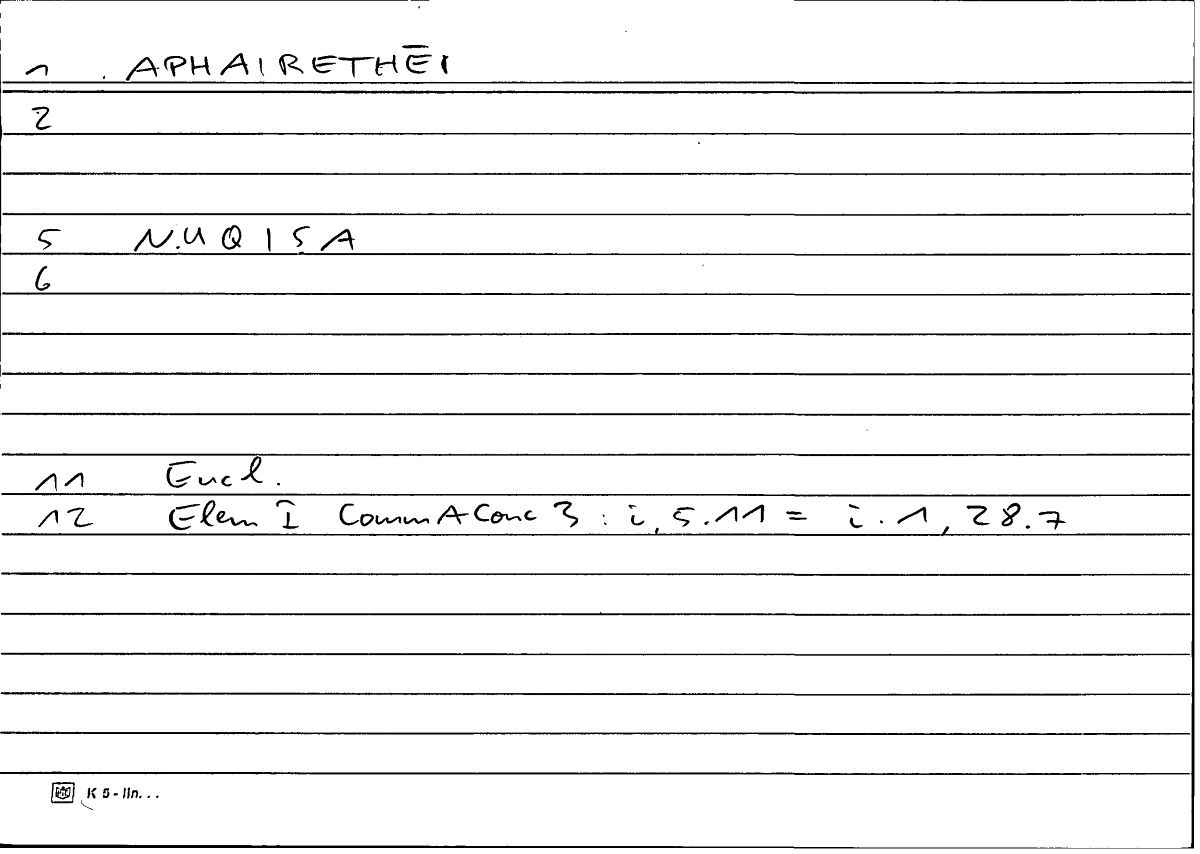 1 . APHAIRETHĒI
2
5 N.UQISA
6
11 Eucl.
12 Elem I CommAConc 3 : i, 5.11 = i.1, 28.7
K 5 - lin...